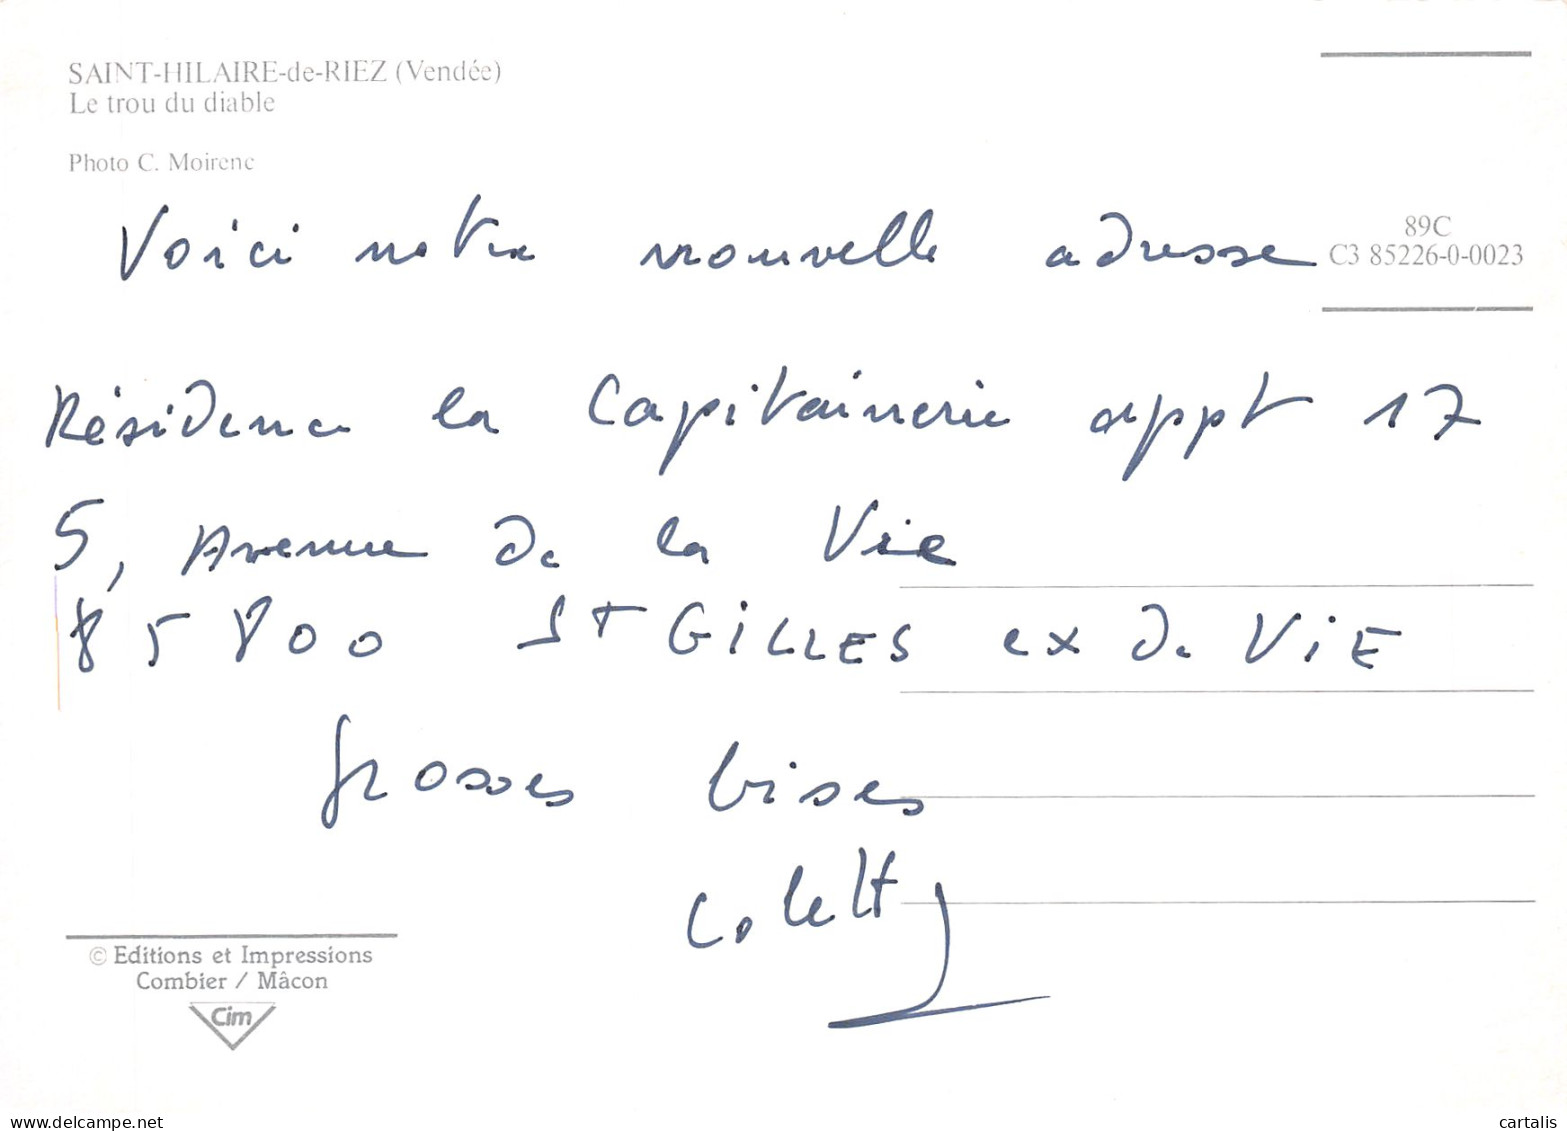 SAINT-HILAIRE-de-RIEZ (Vendée)
Le trou du diable
Photo C. Moirenc
89C
C3 85226-0-0023
Voici notre nouvelle adresse
Résidence la Capitainerie appt 17
5, Avenue de la Vie
85800 St GILLES ex de ViE
grosses bises
Colette
© Editions et Impressions
Combier / Mâcon
Cim
cartalis